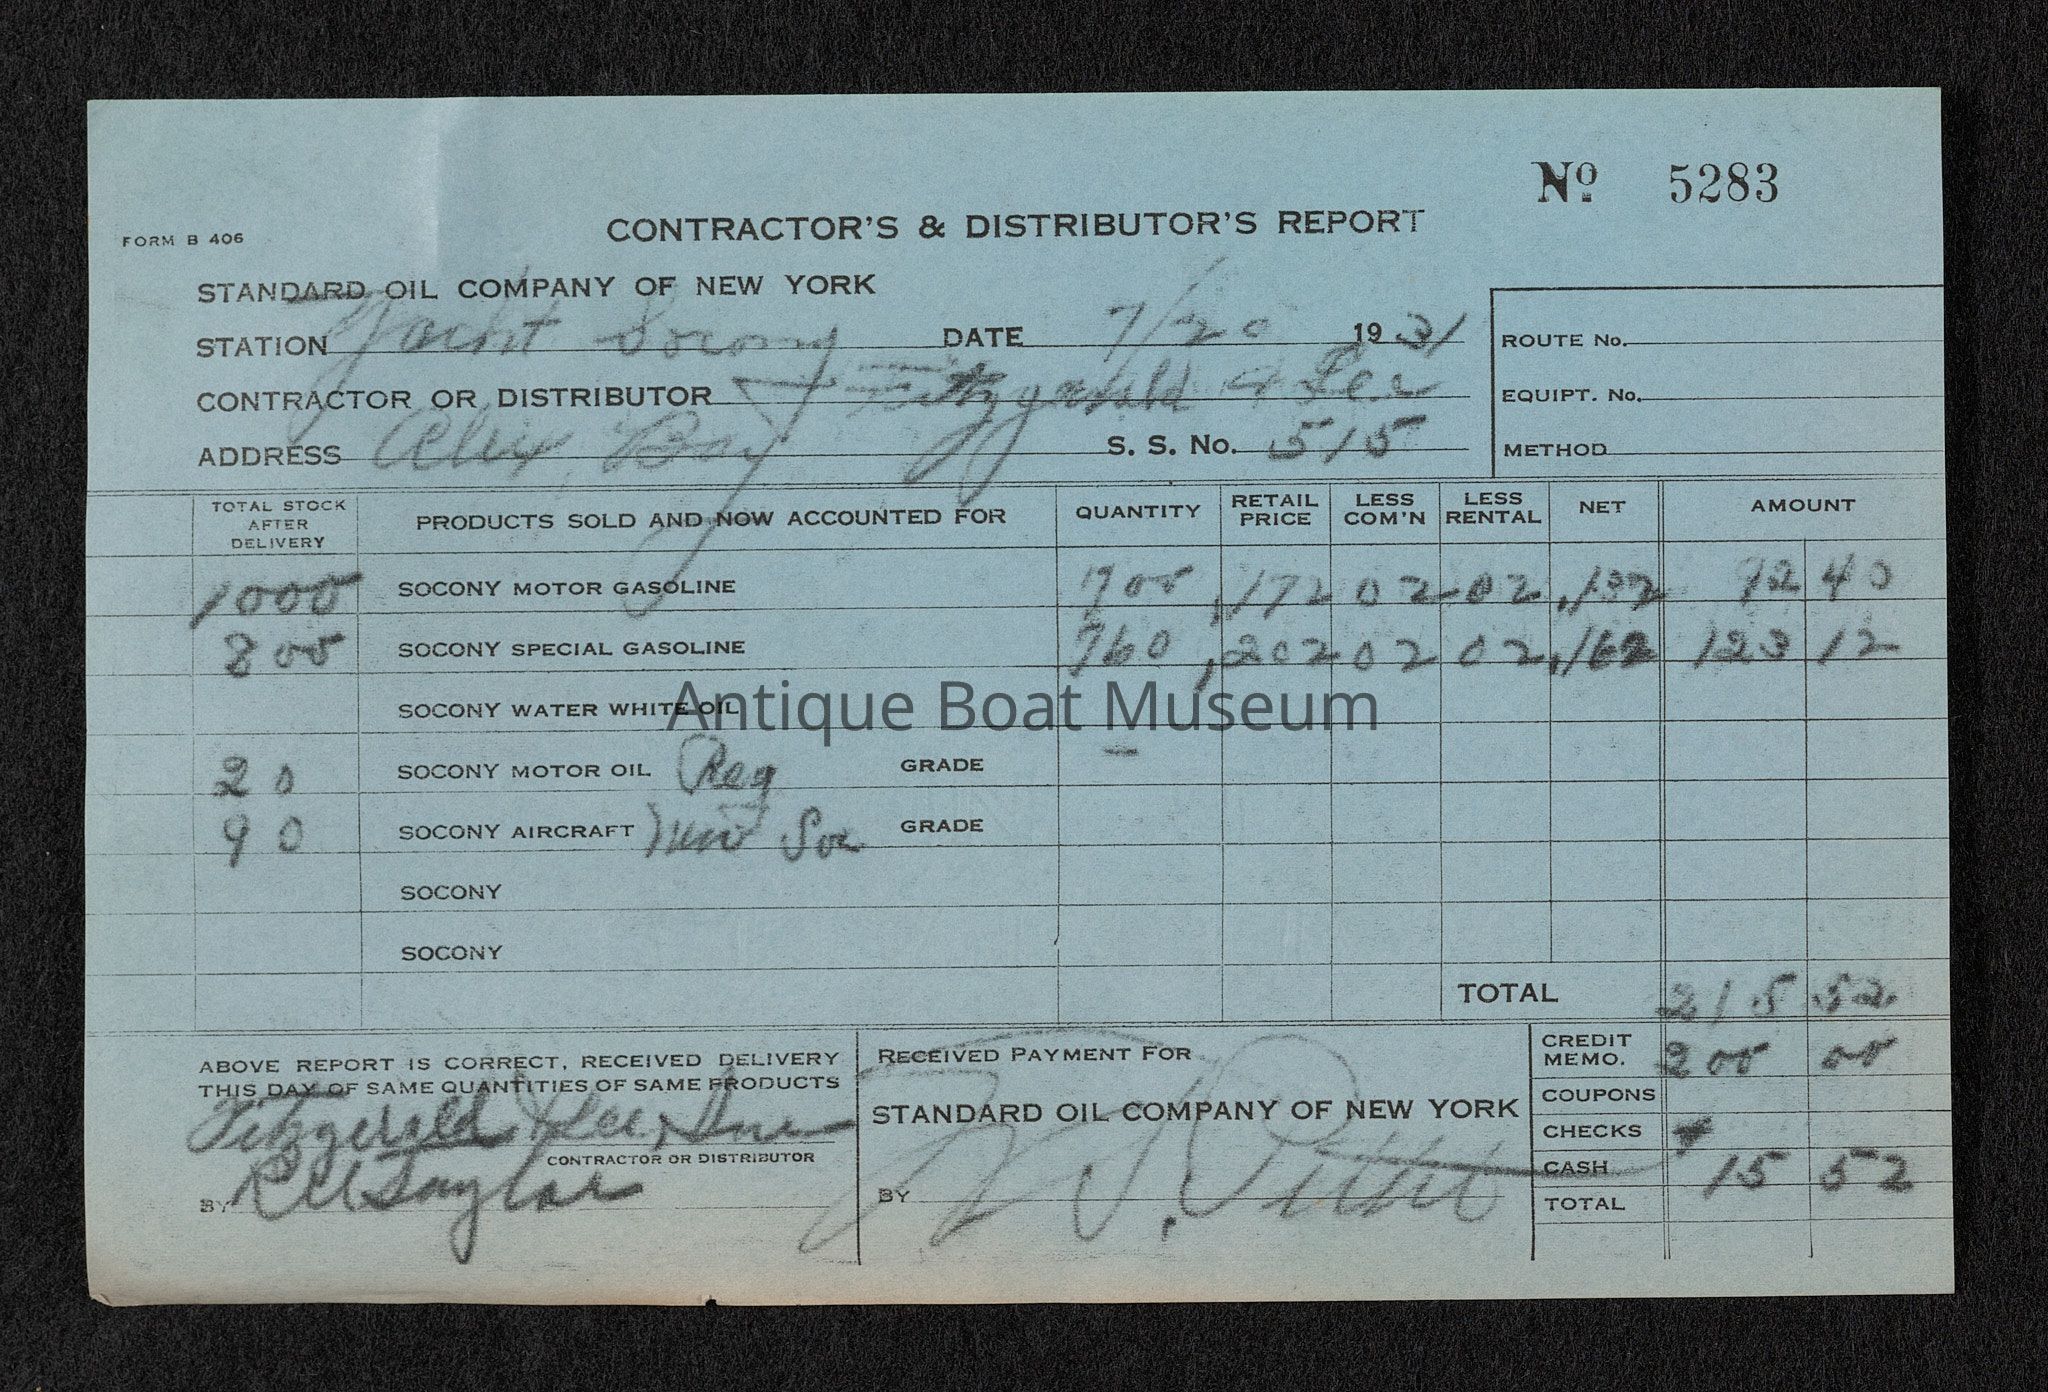 Nº 5283
FORM B 406
CONTRACTOR'S & DISTRIBUTOR'S REPORT
STANDARD OIL COMPANY OF NEW YORK
STATION Yacht Socony DATE 7/20 1931
ROUTE No.
CONTRACTOR OR DISTRIBUTOR Fitzgerald & Lee
EQUIPT. No.
ADDRESS Alex Bay S. S. No. 515
METHOD
TOTAL STOCK AFTER DELIVERY PRODUCTS SOLD AND NOW ACCOUNTED FOR QUANTITY RETAIL PRICE LESS COM'N LESS RENTAL NET AMOUNT
1000 SOCONY MOTOR GASOLINE 700 .172 02 02 .132 92 40
800 SOCONY SPECIAL GASOLINE 760 .202 02 02 .162 123 12
SOCONY WATER WHITE OIL
Antique Boat Museum
20 SOCONY MOTOR OIL Reg GRADE –
90 SOCONY AIRCRAFT GRADE
SOCONY
SOCONY
TOTAL 215 52
ABOVE REPORT IS CORRECT, RECEIVED DELIVERY
THIS DAY OF SAME QUANTITIES OF SAME PRODUCTS
Fitzgerald & Lee, Inc
CONTRACTOR OR DISTRIBUTOR
BY
RECEIVED PAYMENT FOR
STANDARD OIL COMPANY OF NEW YORK
BY
CREDIT MEMO. 200 00
COUPONS
CHECKS
CASH 15 52
TOTAL